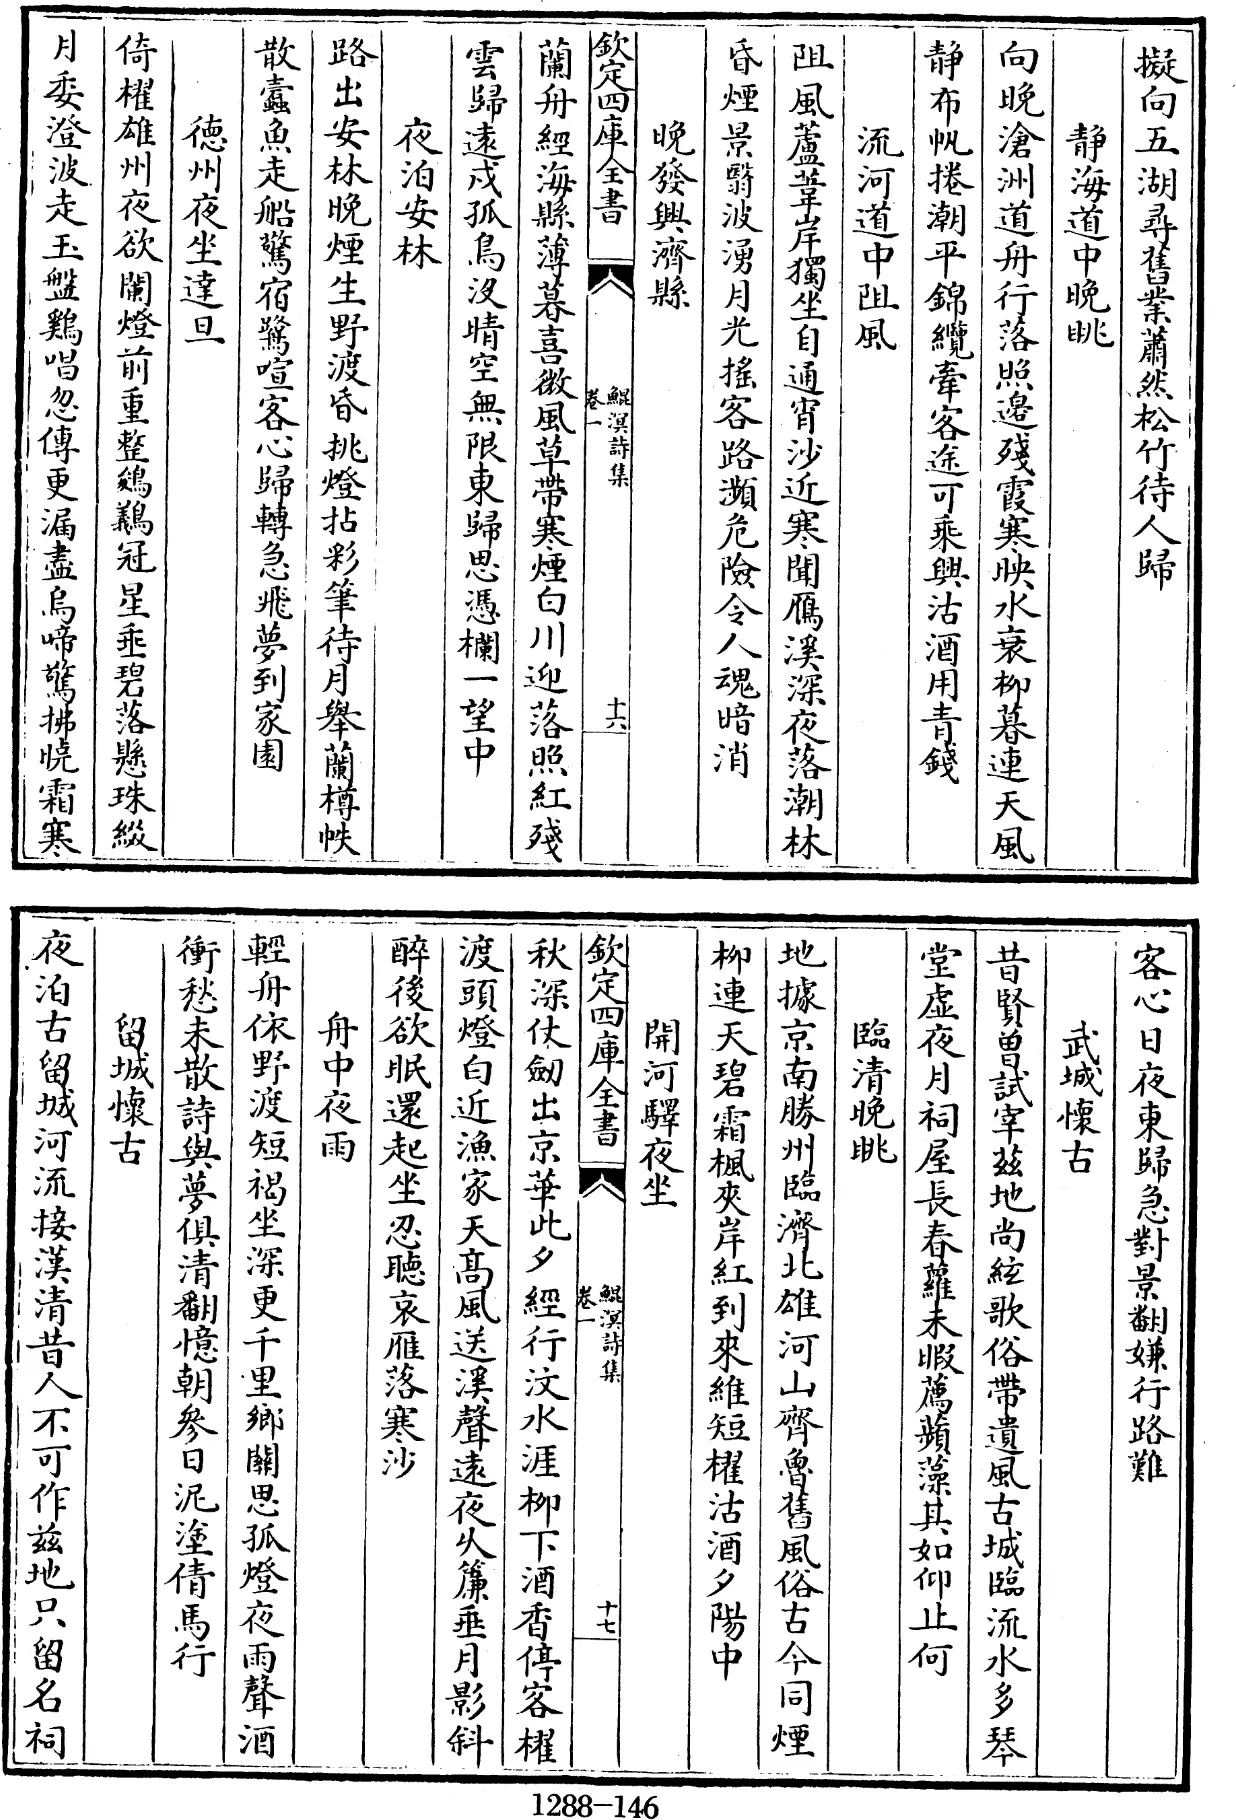 擬向五湖尋舊業蕭然松竹待人歸
静海道中晚眺
向晚滄洲道舟行落照邊殘霞寒映水衰柳暮連天風
静布帆捲潮平錦纜牽客途可乘興沽酒用青錢
流河道中阻風
阻風蘆葦岸獨坐自通宵沙近寒聞鴈溪深夜落潮林
昏煙景翳波湧月光搖客路瀕危險令人魂暗消
晚發興濟縣
欽定四庫全書
鯤溟詩集
卷一
十六
蘭舟經海縣薄暮喜微風草帶寒煙白川迎落照紅殘
雲歸遠戍孤鳥沒晴空無限東歸思憑欄一望中
夜泊安林
路出安林晚煙生野渡昏挑燈拈彩筆待月舉蘭樽帙
散蠹魚走船驚宿鷺喧客心歸轉急飛夢到家園
德州夜坐達旦
倚櫂雄州夜欲闌燈前重整鵕鸃冠星垂碧落懸珠綴
月委澄波走玉盤鷄唱忽傳更漏盡烏啼驚拂曉霜寒
客心日夜東歸急對景翻嫌行路難
武城懷古
昔賢曽試宰兹地尚絃歌俗帶遺風古城臨流水多琴
堂虛夜月祠屋長春蘿未暇薦蘋藻其如仰止何
臨清晚眺
地據京南勝州臨濟北雄河山齊魯舊風俗古今同煙
柳連天碧霜楓夾岸紅到來維短櫂沽酒夕陽中
開河驛夜坐
欽定四庫全書
鯤溟詩集
卷一
十七
秋深仗劒出京華此夕經行汶水涯柳下酒香停客櫂
渡頭燈白近漁家天髙風送溪聲遠夜久簾垂月影斜
醉後欲眠還起坐忍聽哀雁落寒沙
舟中夜雨
輕舟依野渡短褐坐深更千里鄉關思孤燈夜雨聲酒
衝愁未散詩與夢俱清翻憶朝參日泥塗倩馬行
留城懷古
夜泊古留城河流接漢清昔人不可作兹地只留名祠
1288-146